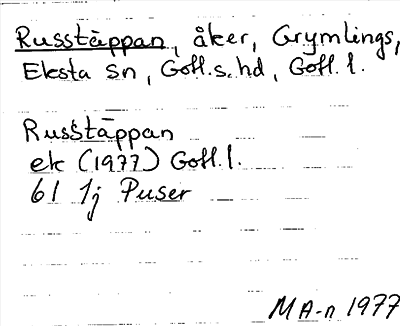 Russtäppan, åker, Grymlings,
Eksta sn, Gotl.s.hd, Gotl. l.
Russtäppan
ek (1977) Gotl.l.
61 1j Puser
MA-n 1977